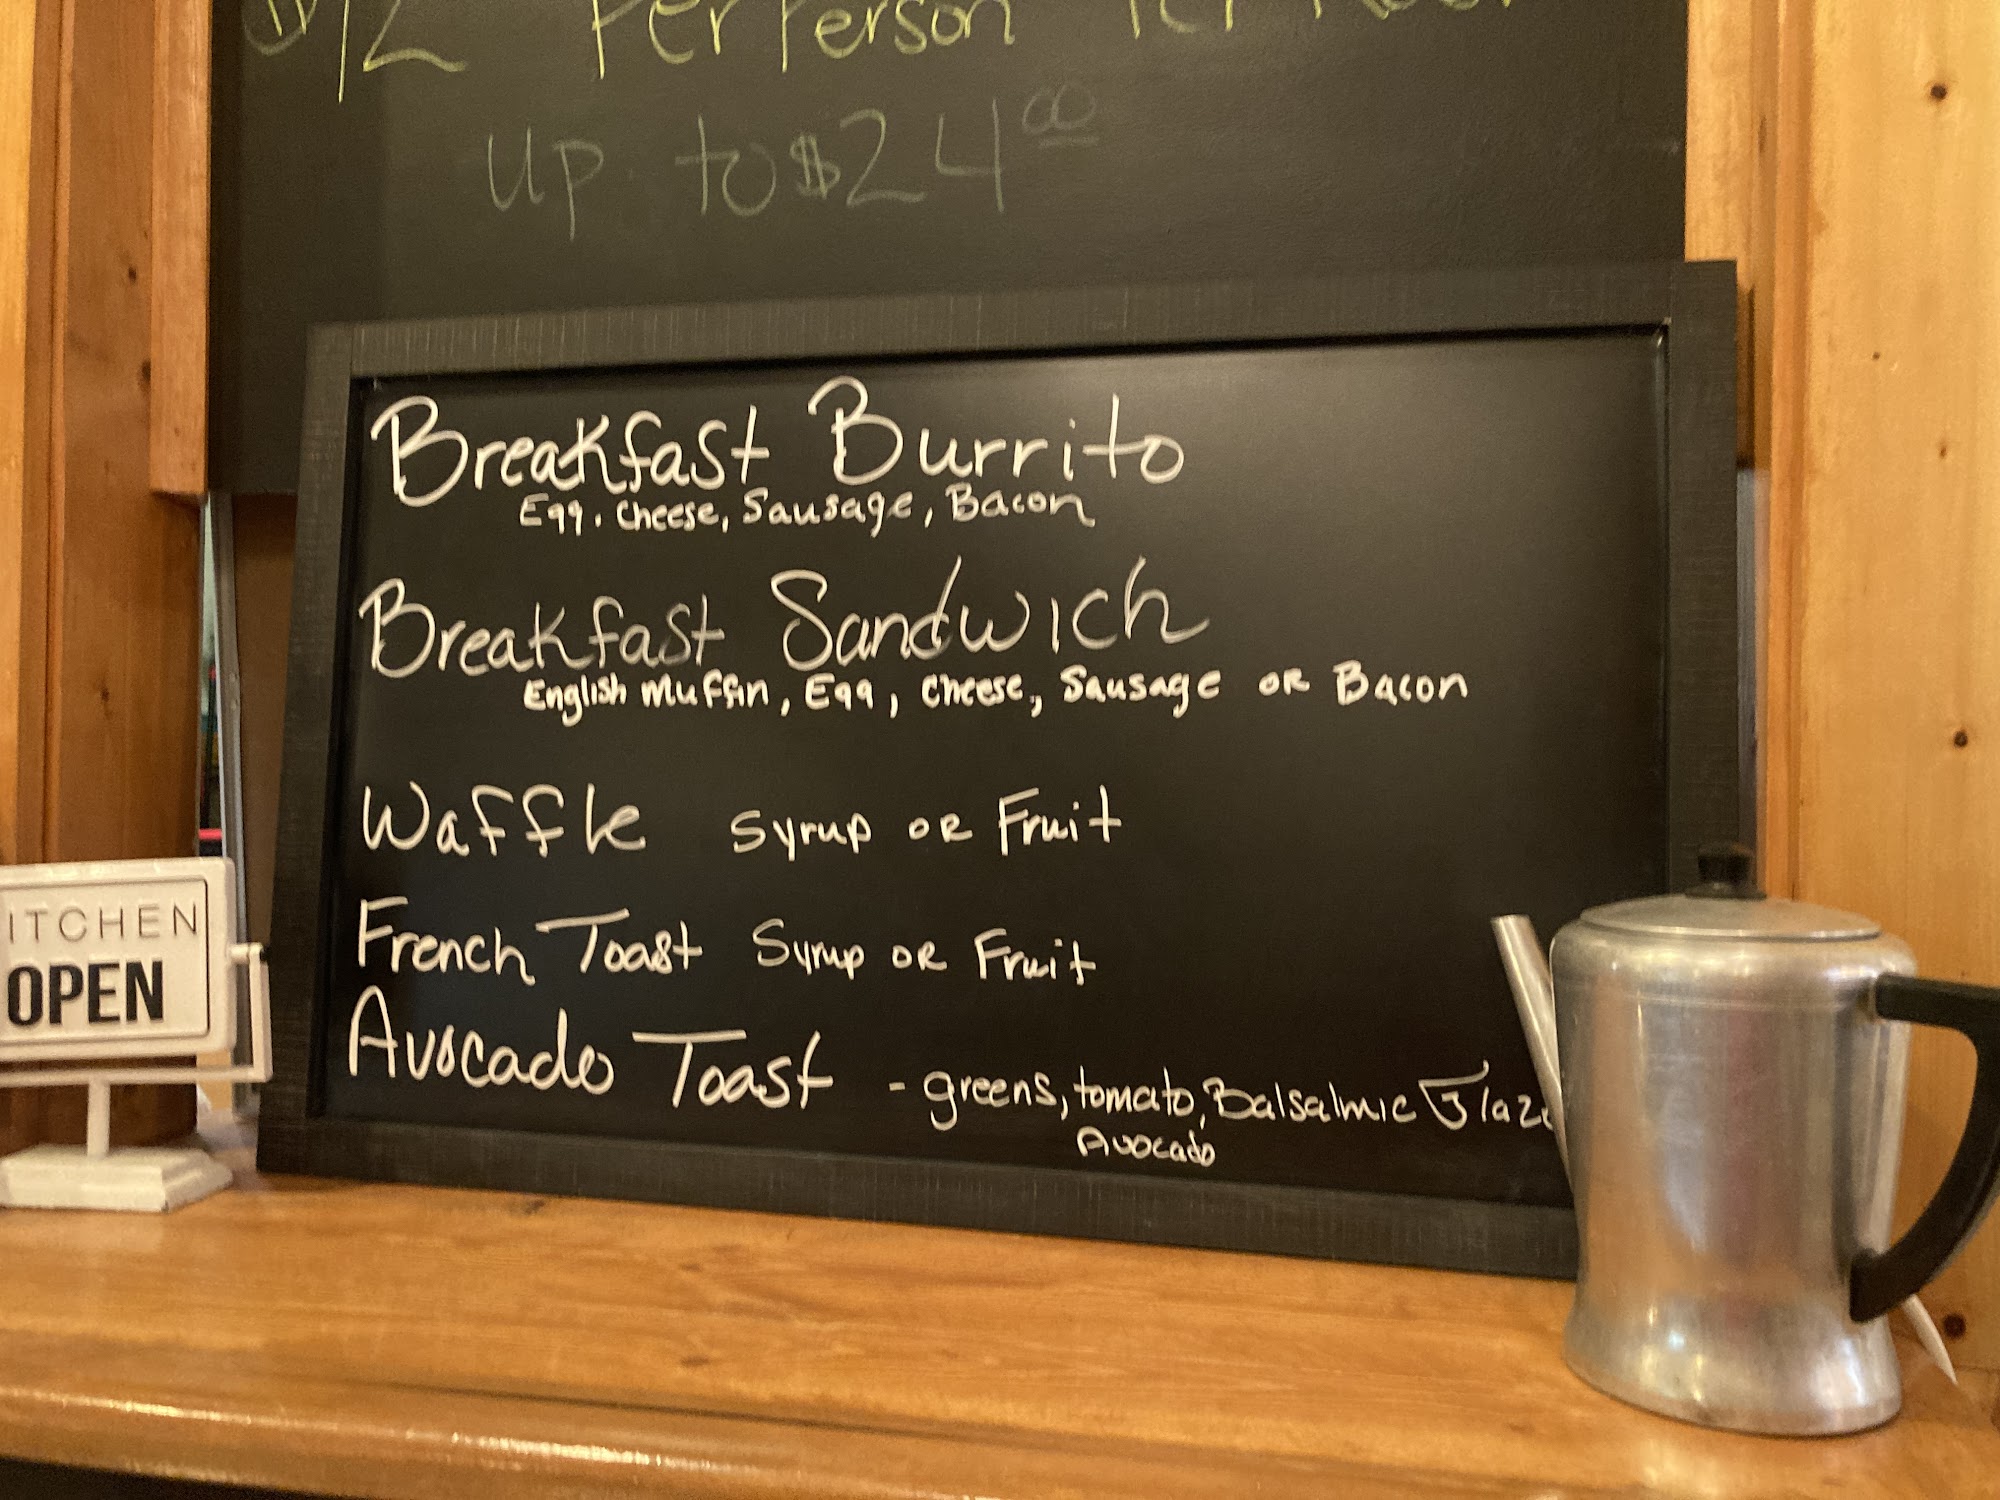 Per Person
up to $24.00
Breakfast Burrito
Egg, Cheese, Sausage, Bacon
Breakfast Sandwich
English Muffin, Egg, Cheese, Sausage OR Bacon
Waffle Syrup OR Fruit
French Toast Syrup OR Fruit
Avocado Toast - greens, tomato, Balsalmic Glaze
Avocado
ITCHEN
OPEN